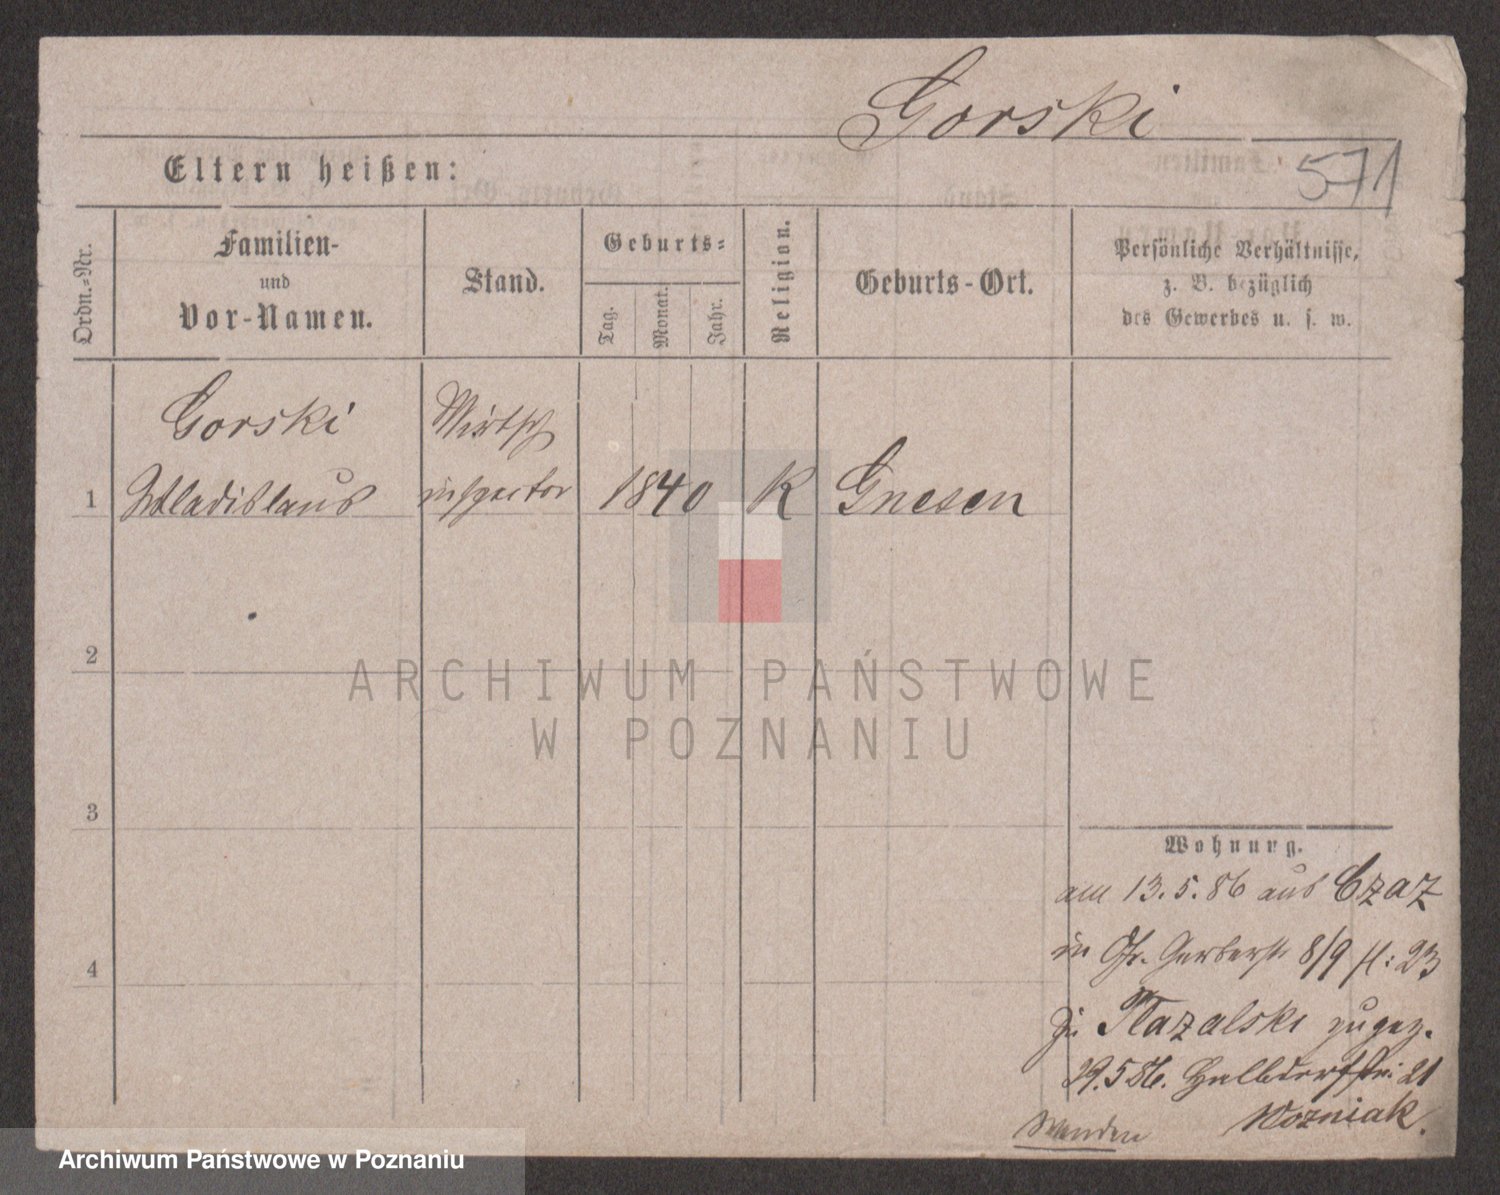 Gorski
571
Eltern heißen:
Ordn.-Nr.
Familien-
und
Vor-Namen.
Stand.
Geburts-
Tag.
Monat.
Jahr.
Religion.
Geburts-Ort.
Persönliche Verhältnisse,
z. B. bezüglich
des Gewerbes u. s. w.
Gorski Wirtsch
1 Wladislaus inspector 1840 K Gnesen
2
ARCHIWUM PAŃSTWOWE
W POZNANIU
3
Wohnung.
am 13.5.86 aus Czaz
4
in Gr. Gerberstr 8/9 fl: 23
zu zugez.
29.5 86. Halbdorfstr: 21
Wozniak.
Wenden
Archiwum Państwowe w Poznaniu